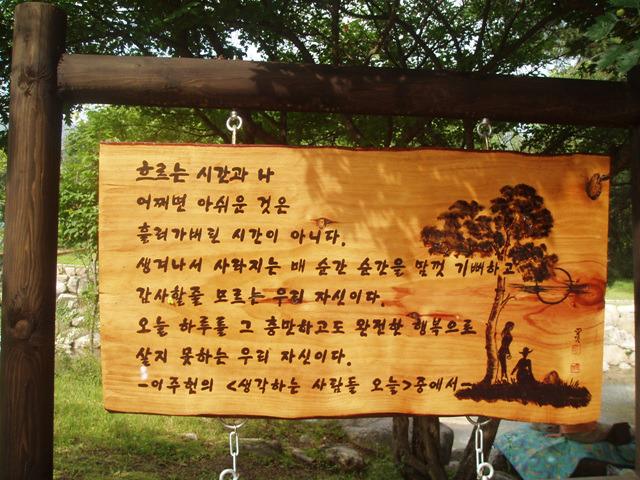 흐르는 시간과 나
어쩌면 아쉬운 것은
흘러가버린 시간이 아니다.
생겨나서 사라지는 매 순간 순간을 맘껏 기뻐하고
감사할줄 모르는 우리 자신이다.
오늘 하루를 그 충만하고도 완전한 행복으로
살지 못하는 우리 자신이다.
-이주헌의 <생각하는 사람들 오늘>중에서-